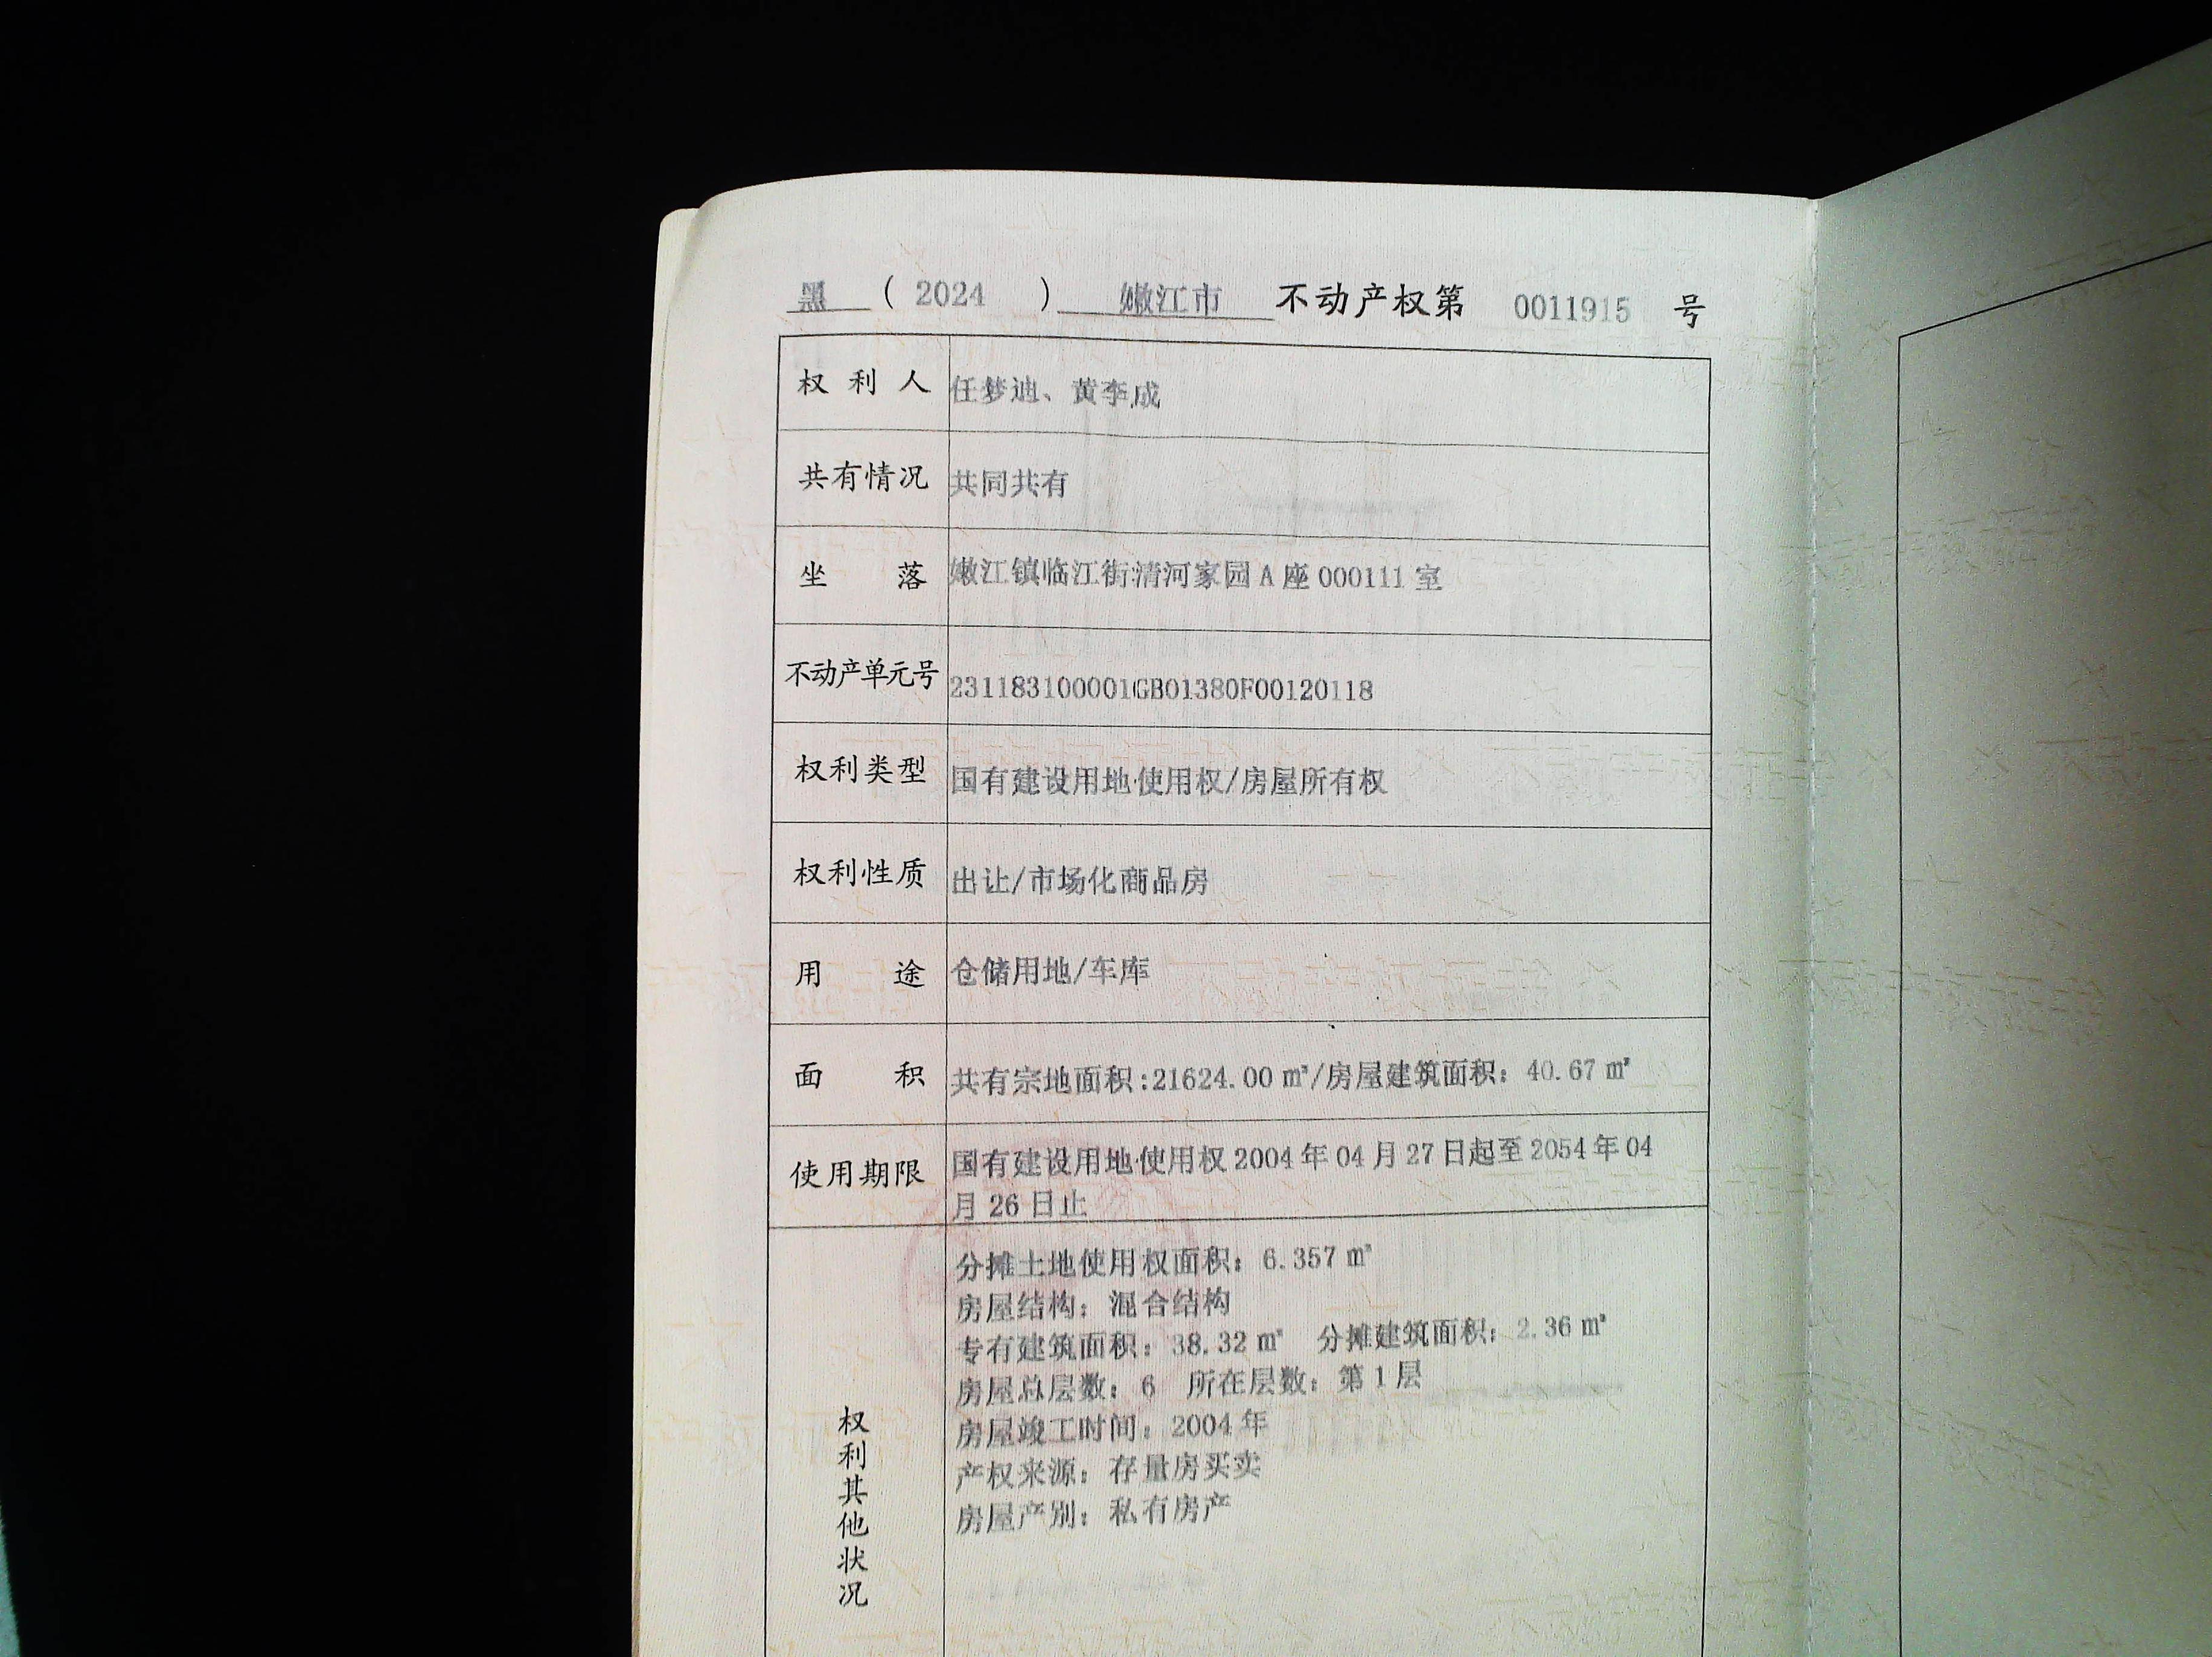 黑 ( 2024 ) 嫩江市 不动产权第 0011915 号
权利人 任梦迪、黄李成
共有情况 共同共有
坐落 嫩江镇临江街清河家园A座000111室
不动产单元号 231183100001GB01380F00120118
权利类型 国有建设用地使用权/房屋所有权
权利性质 出让/市场化商品房
用途 仓储用地/车库
面积 共有宗地面积:21624.00㎡/房屋建筑面积：40.67㎡
使用期限 国有建设用地使用权2004年04月27日起至2054年04
月26日止
权利其他状况
分摊土地使用权面积：6.357㎡
房屋结构：混合结构
专有建筑面积：38.32㎡ 分摊建筑面积：2.36㎡
房屋总层数：6 所在层数：第1层
房屋竣工时间：2004年
产权来源：存量房买卖
房屋产别：私有房产